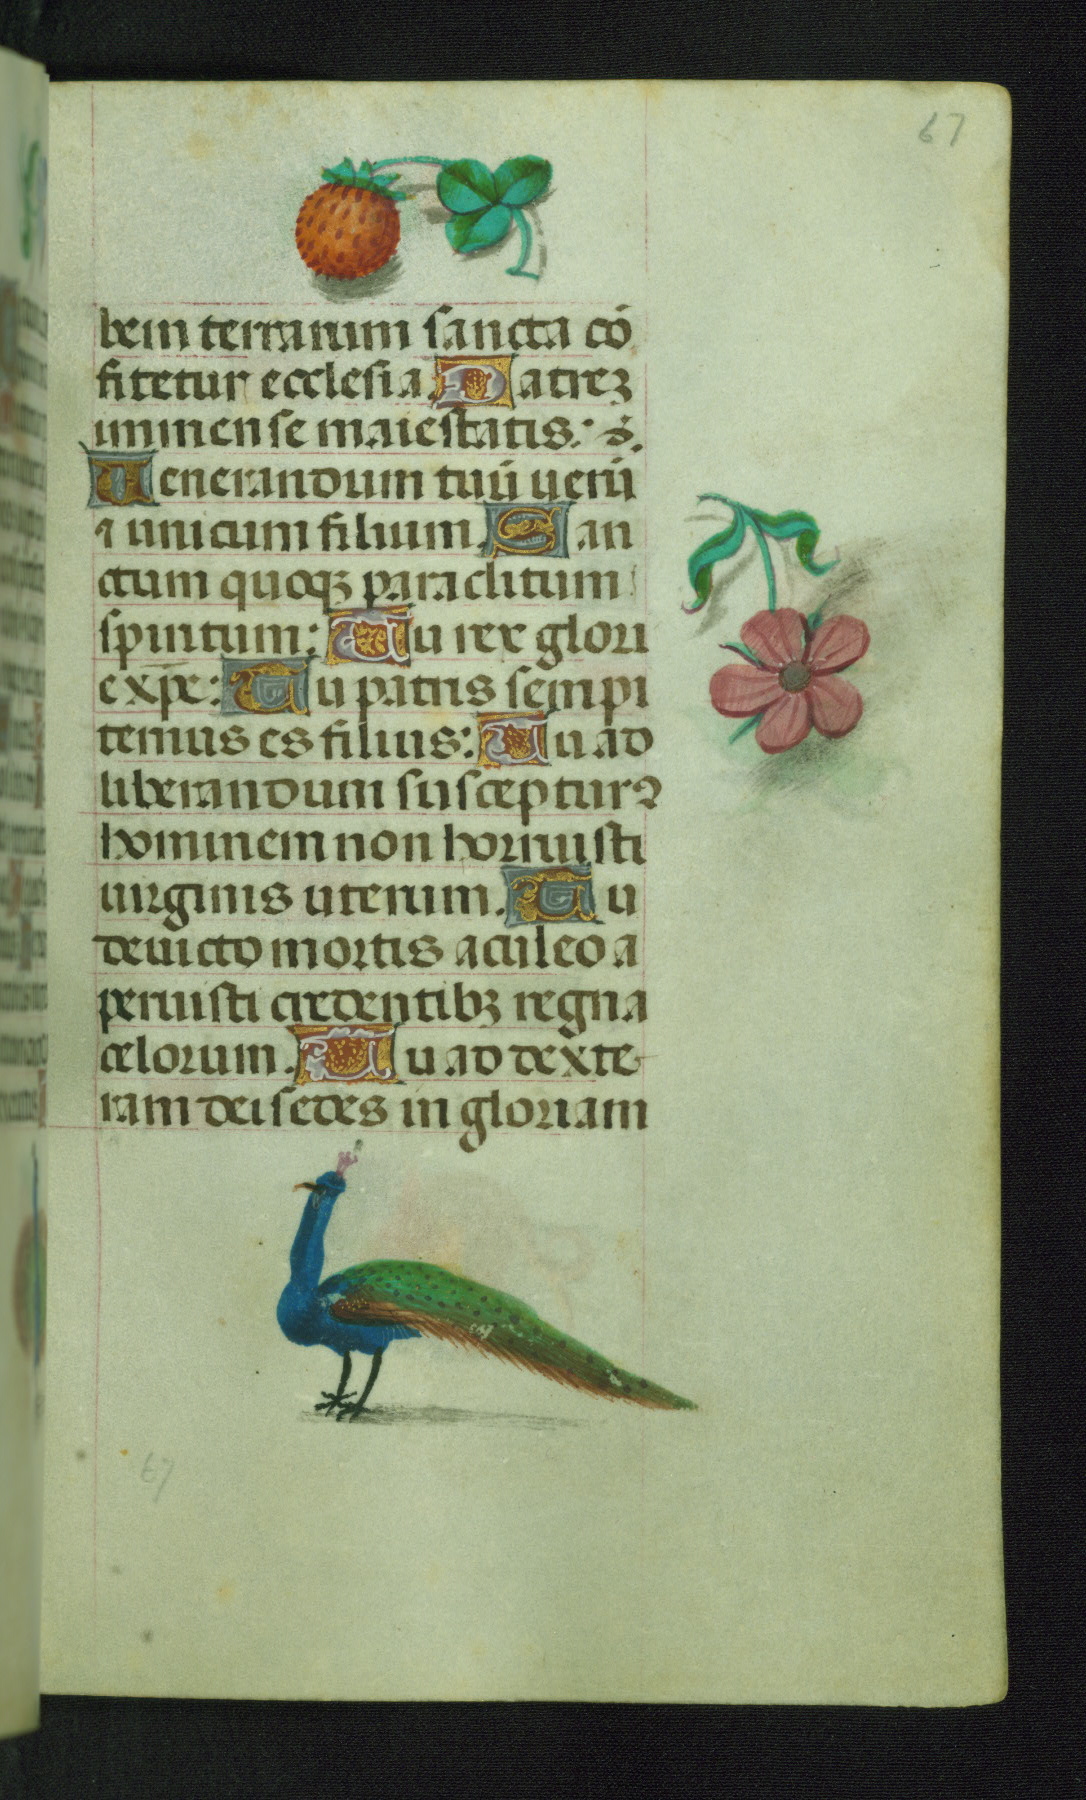 67
bem terrarum sancta cō
fitetur ecclesia. Patreꝫ
immense maiestatis: ·ꝯ̄.
Uenerandum tuū uerū
⁊ unicum filium. San
ctum quoqꝫ paraclitum
spiritum: Tu rex glori
e xp̄e: Tu patris sempi
ternus es filius: Tu ad
liberandum suscepturꝰ
hominem non horruisti
uirginis uterum. Tu
deuicto mortis aculeo a
peruisti credentibꝫ regna
celorum. Tu ad dexte
ram dei sedes in gloriam
67